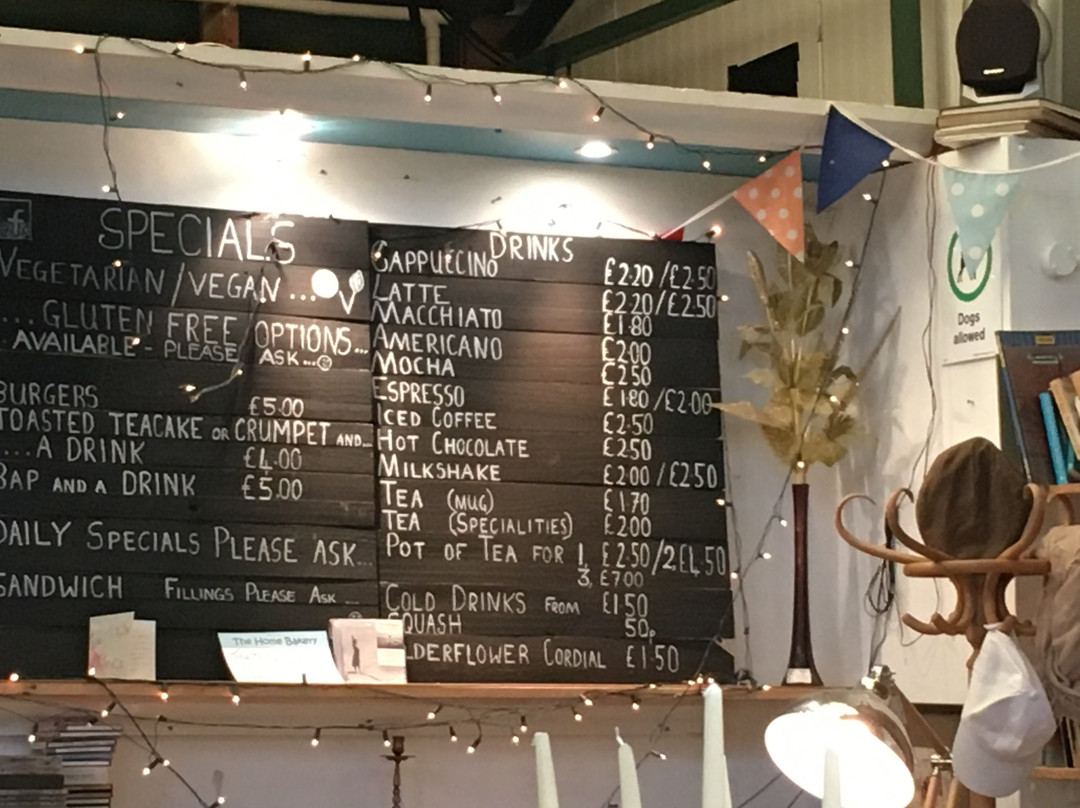 SPECIALS
VEGETARIAN/VEGAN...
...GLUTEN FREE OPTIONS...
AVAILABLE - PLEASE ASK...
BURGERS £5.00
TOASTED TEACAKE OR CRUMPET AND...
....A DRINK £4.00
BAP AND A DRINK £5.00
DAILY SPECIALS PLEASE ASK...
SANDWICH FILLINGS PLEASE ASK...
DRINKS
CAPPUCCINO £2.20/£2.50
LATTE £2.20/£2.50
MACCHIATO £1.80
AMERICANO £2.00
MOCHA £2.50
ESPRESSO £1.80/£2.00
ICED COFFEE £2.50
HOT CHOCOLATE £2.50
MILKSHAKE £2.00/£2.50
TEA (MUG) £1.70
TEA (SPECIALITIES) £2.00
POT OF TEA FOR 1, £2.50/2,£4.50
3, £7.00
COLD DRINKS FROM £1.50
SQUASH 50p
LDERFLOWER CORDIAL £1.50
The Home Bakery
Dogs
allowed